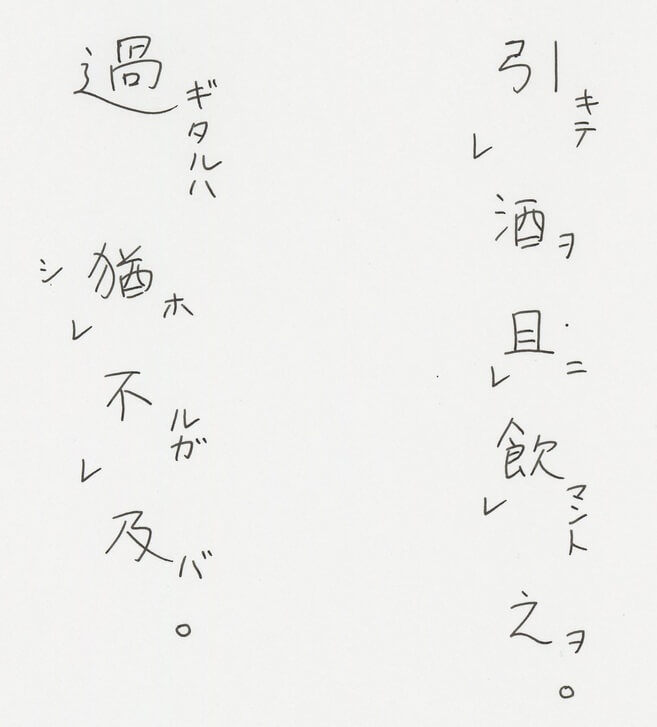 引キテレ酒ヲ且ニレ飲マントレ之ヲ。
過ギタルハ猶ホシレ不ルガレ及バ。